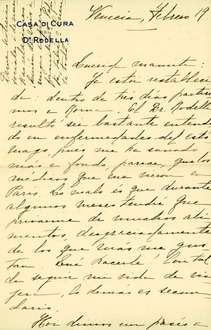 CASA DI CURA
DEL
Dr RODELLA
Venecia, Febrero 19
mamita:
Ya estoy restableci
da: dentro de tres dias partire
mos a Roma. El Dr. Rodella
resultó ser bastante entendi
do en enfermedades del esto
mago, pues me ha sanado
mas a fondo, parece, que los
médicos que me vieron en
Paris. Lo malo es que durante
algunos meses tendré que
privarme de muchos ali
mentos, desgraciadamente
de los que mas me gus
tan. Qué hacerle! Con tal
de seguir mi vida de via
jero, lo demás es secun
dario.
Hoy dimos un paseo a